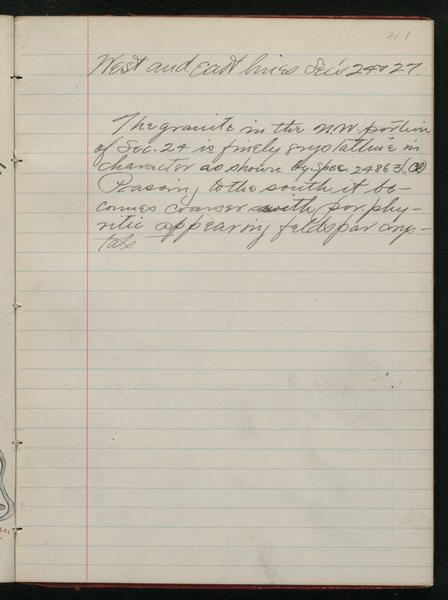 41
West and east lines Sec's 24 & 27.
The granite in the N.W. portion
of Sec. 24 is finely crystalline in
character as shown by Spec 24863
Passing to the south it be-
comes coarser with porphy-
ritic appearing feldspar crys-
tals